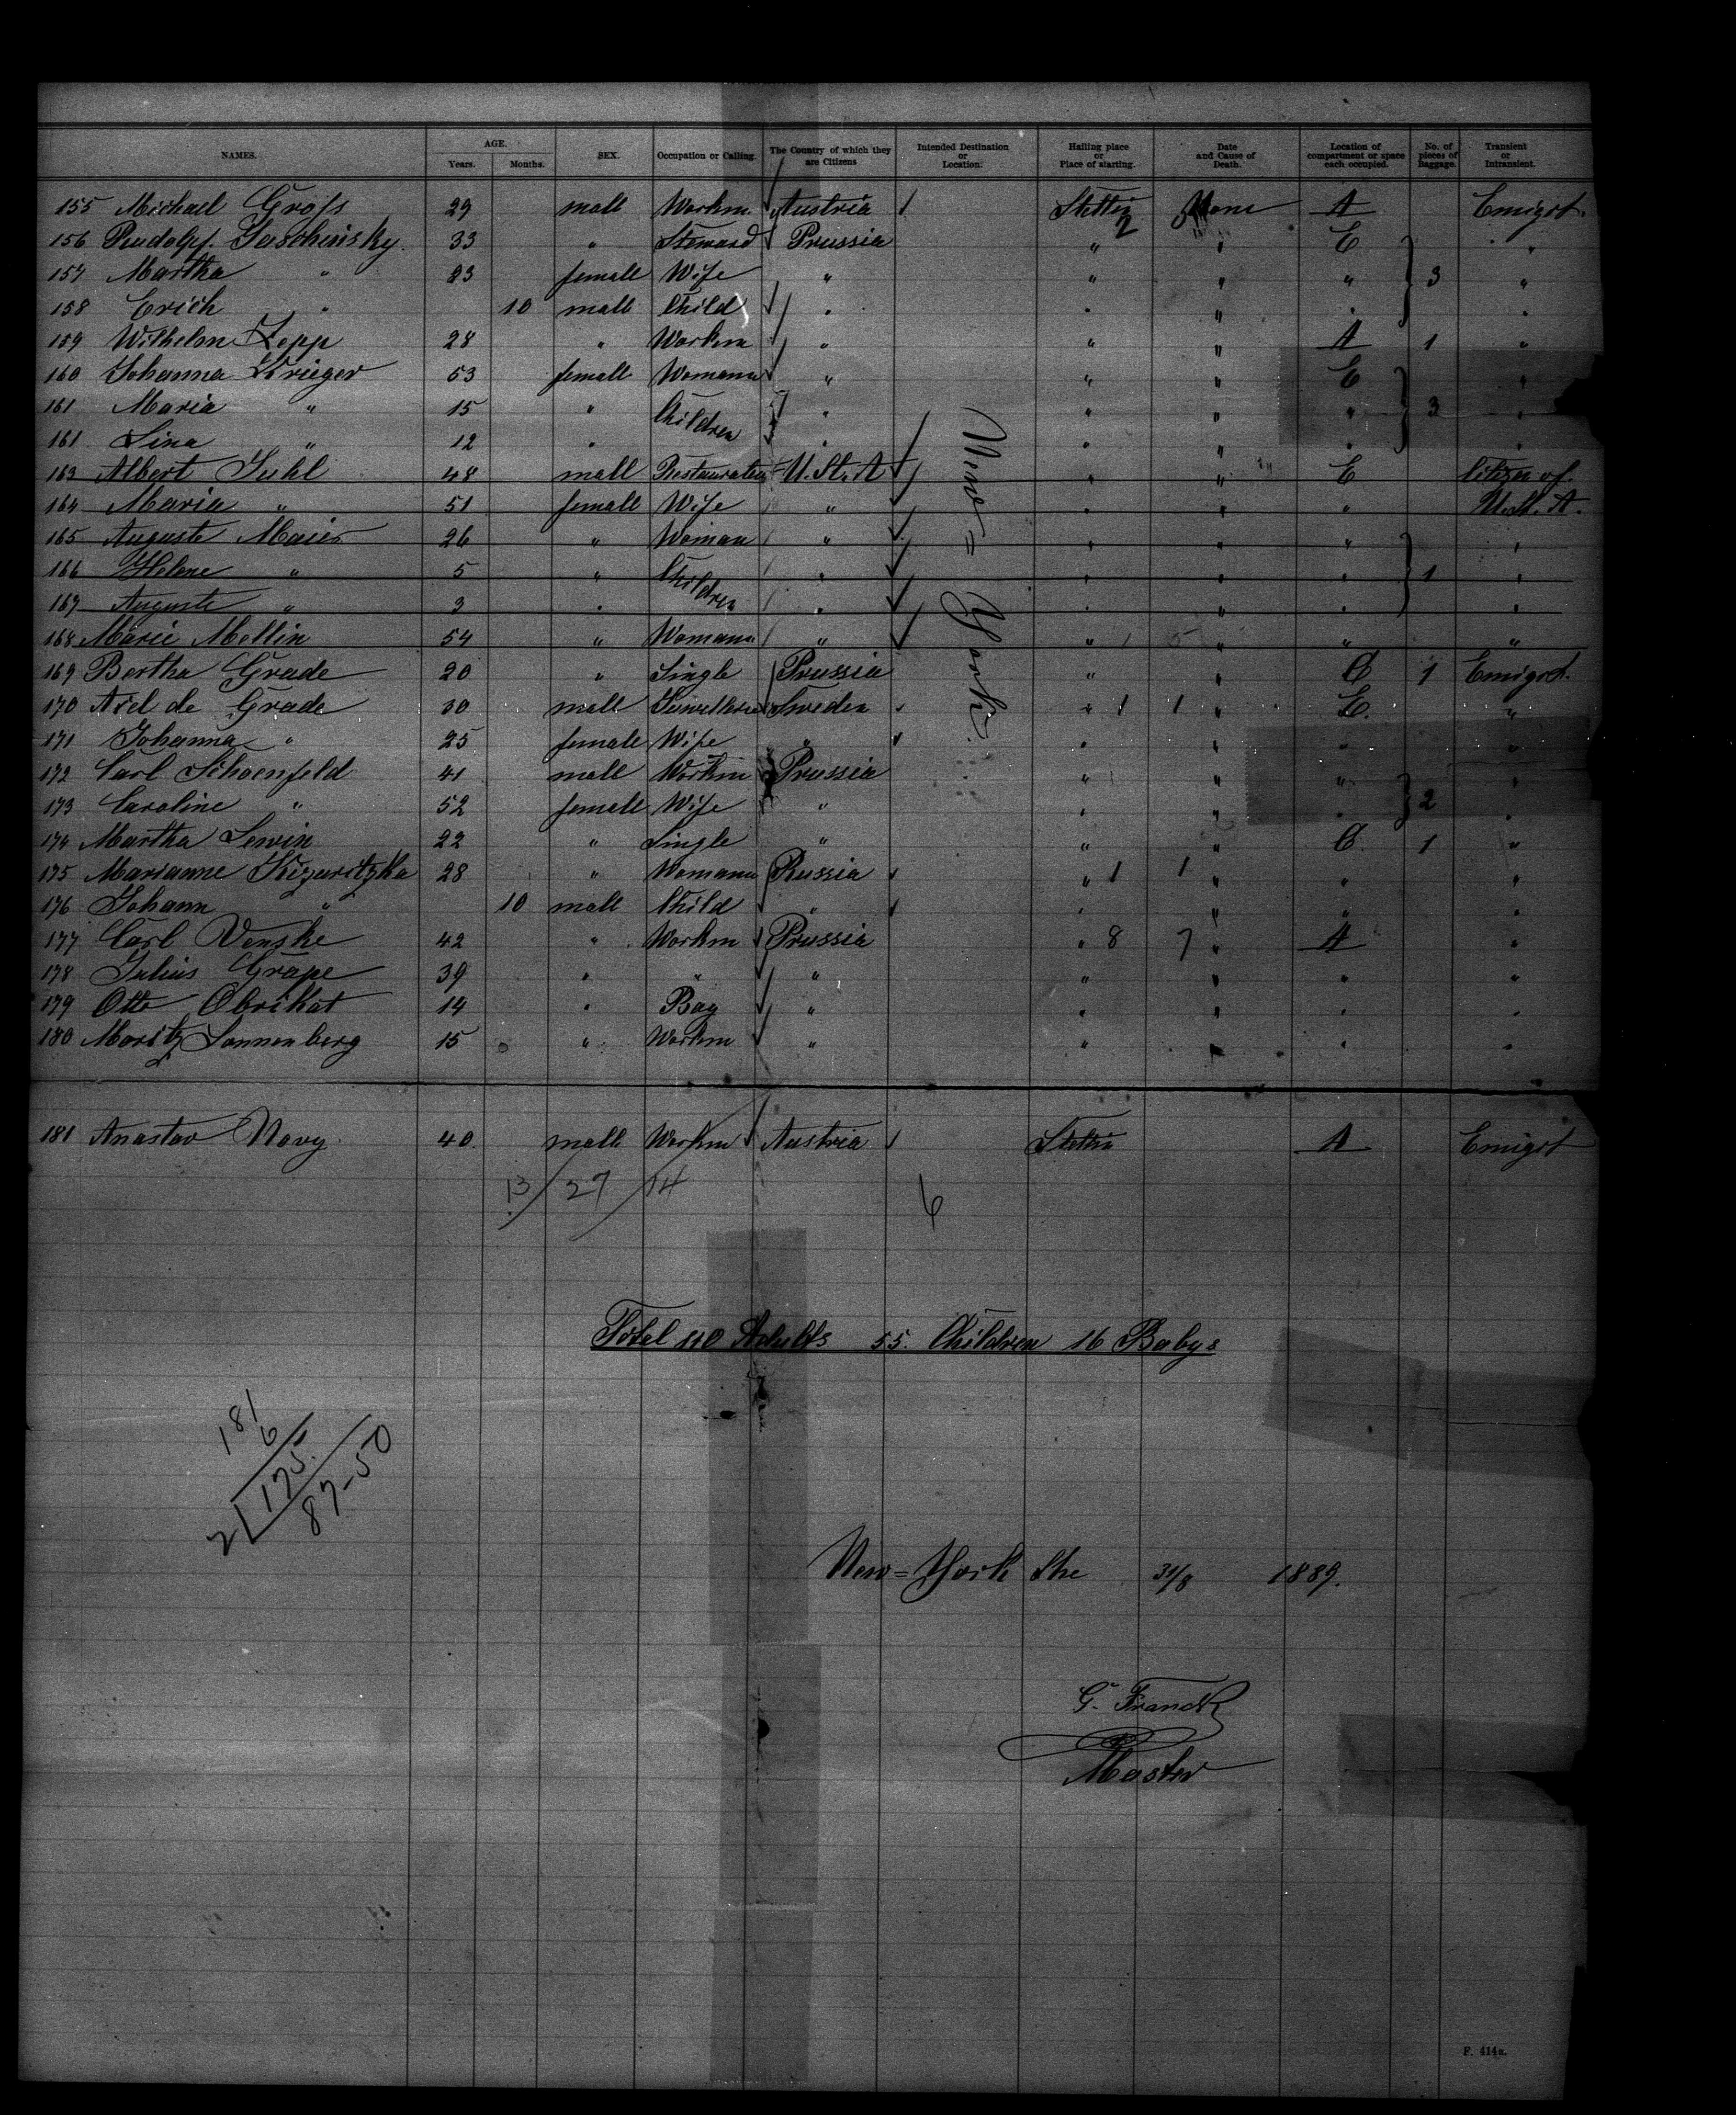 NAMES. AGE. Years. Months. SEX. Occupation or Calling. The Country of which they are Citizens Intended Destination or Location. Hailing place or Place of starting. Date and Cause of Death. Location of compartment or space each occupied. No. of pieces of Baggage. Transient or Intransient.
155 Michael Grofs 29 male Workm. Austria Stettin None A Emigrt.
156 Rudolpf. 33 " Steward Prussia " " E "
157 Martha " 23 female Wife " " " " 3 "
158 Erich " 10 male Child " " " " "
159 Wilhelm Zepp 28 " Workm " " " A 1 "
160 Johanna Krieger 53 female Womann " " " E "
161 Maria " 15 " Children " " " " 3 "
161 Lina " 12 " " " " " "
163 Albert Juhl 48 male U. St. A " " E Citizen of
164 Maria " 51 female Wife " " " " U. St. A.
165 Auguste Maier 26 " Woman " " " " "
166 Helene " 5 " Children " " " " 1 "
167 Auguste " 3 " " " " " "
168 Marie Mellin 54 " Womann " " " " "
New=York.
169 Bertha Grade 20 " Single Prussia " " C 1 Emigrt.
170 Axel de Grade 30 male Sweden " 1 1 " E. "
171 Johanna " 25 female Wife " " " " "
172 Carl Schoenfeld 41 male Workm Prussia " " " "
173 Caroline " 52 female Wife " " " " 2 "
174 Martha Lewin 22 " Single " " " C. 1 "
175 Marianne 28 " Womann Russia " 1 1 " "
176 Johann " 10 male Child " " " " "
177 Carl Venske 42 " Workm Prussia " 8 7 " A "
178 Julius Grape 39 " " " " " "
179 Otto Obrikat 14 " Boy " " " " "
180 Moritz Sonnenberg 15 " Workm " " " " "
181 Anastav Navy 40 male Workm Austria Stettin A Emigrt
13/27/14 6
Total 110 Adults 55. Children 16 Babys
181
6
2 175.
87-50
New=York the 31/8 1889.
G. Franck
Master
F. 414a.